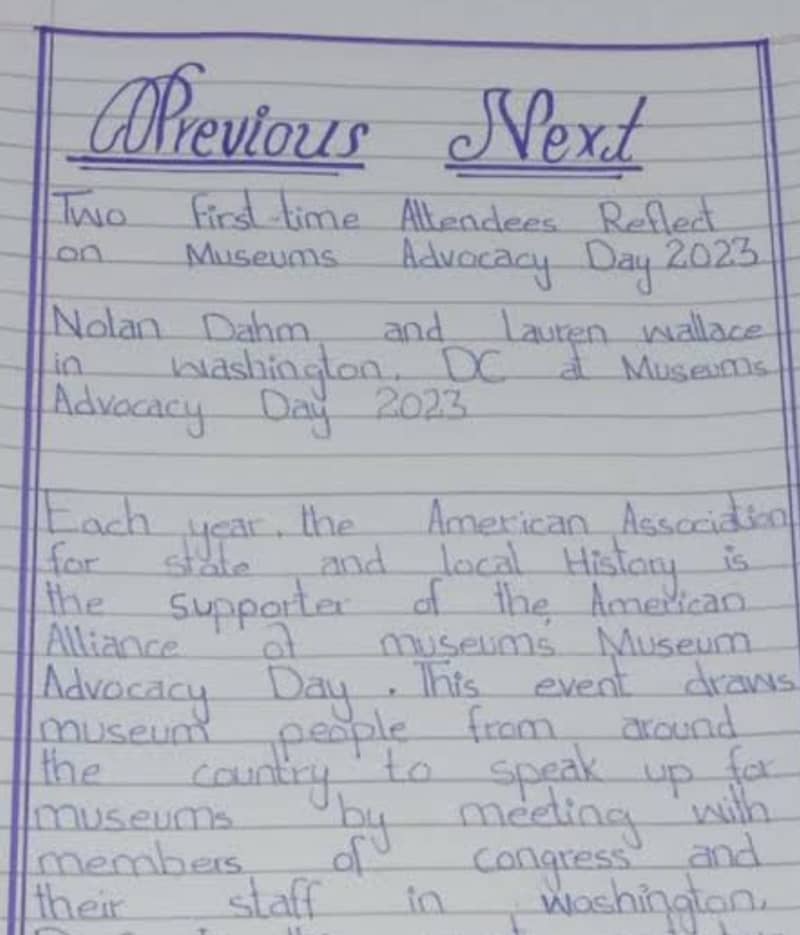 Previous Next
Two first-time Attendees Reflect
on Museums Advocacy Day 2023
Nolan Dahm and Lauren wallace
in washington, DC at Museums
Advocacy Day 2023
Each year, the American Association
for state and local History is
the supporter of the American
Alliance of museums' Museum
Advocacy Day. This event draws
museum people from around
the country to speak up for
museums by meeting with
members of congress and
their staff in washington,